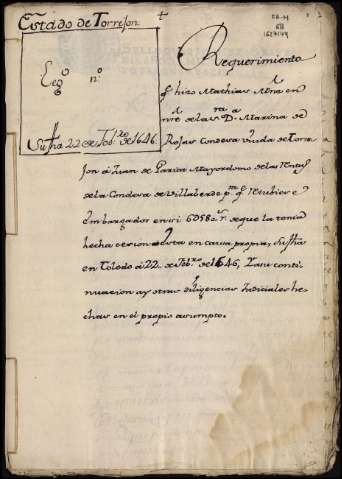 Estado de Torrejon
Leg.º n.º
Su fha 22 de Feb.ro de 1646.
Requerimiento
q.e hizo Mathias Mrn en
nre de la S.ra D.a Mariana de
Rojas Condesa viuda de Torre
jon á Juan de Pareja Mayordomo de las Rentas
de la Condesa de Villaverde p.ra q.e tubiese
embargados en si 6058 r.s de que la tenia
hecha cesion dota en causa propia, su fha
en Toledo á 22 de Feb.ro de 1646, Y a su conti
nuacion ay otras diligencias Judiciales he
chas en el propio asumpto.